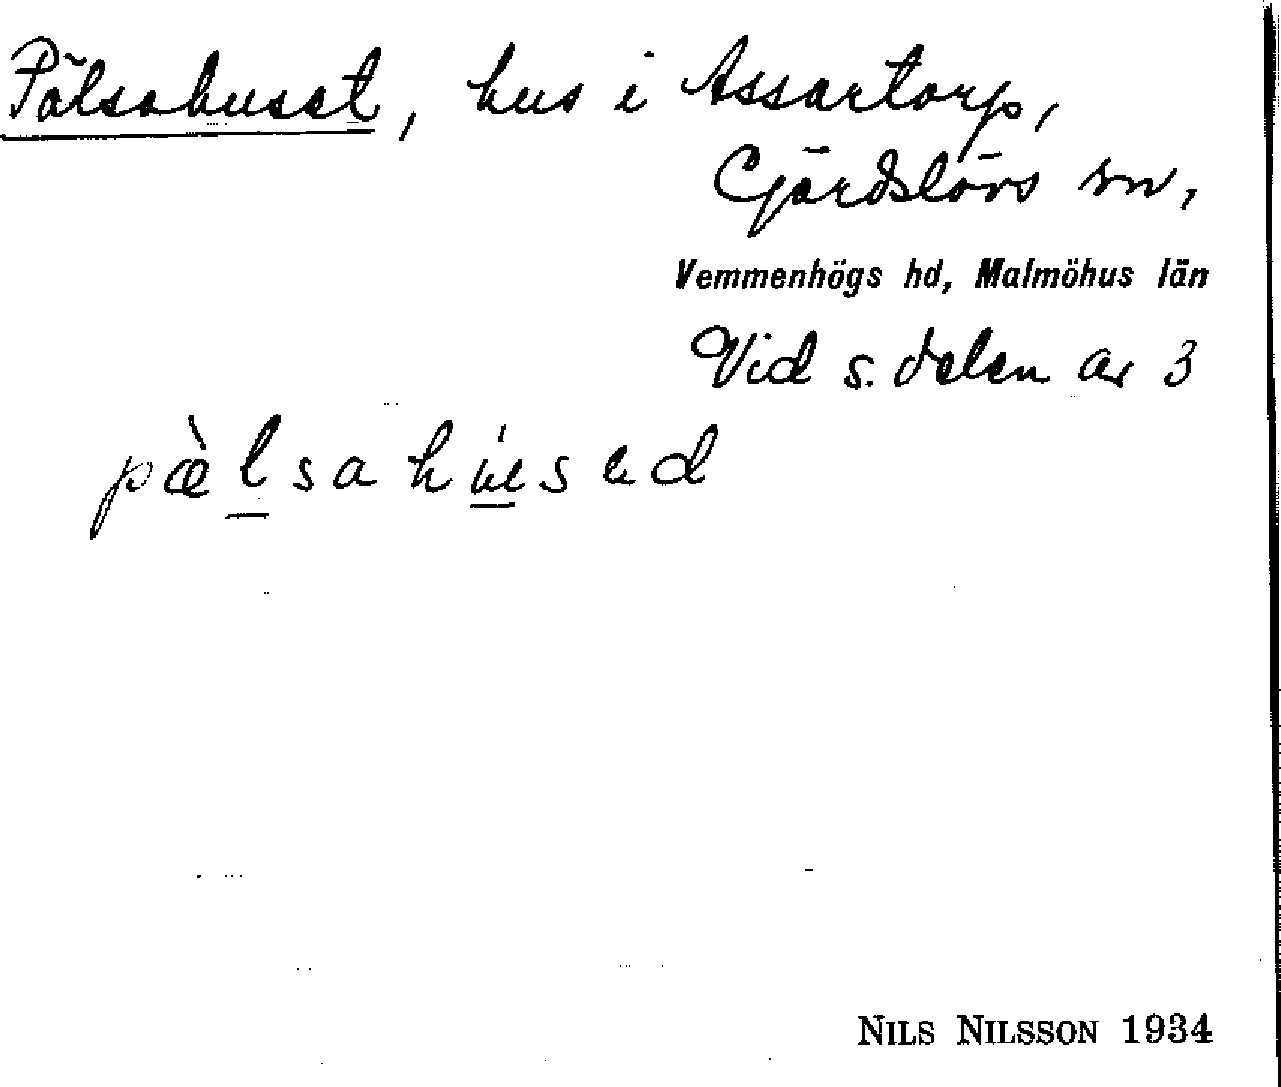 Pälsahuset, hus i Assartorp,
Gärdslövs sn,
Vemmenhögs hd, Malmöhus län
Vid s. delen av 3
pæ̀lsahúsed
NILS NILSSON 1934